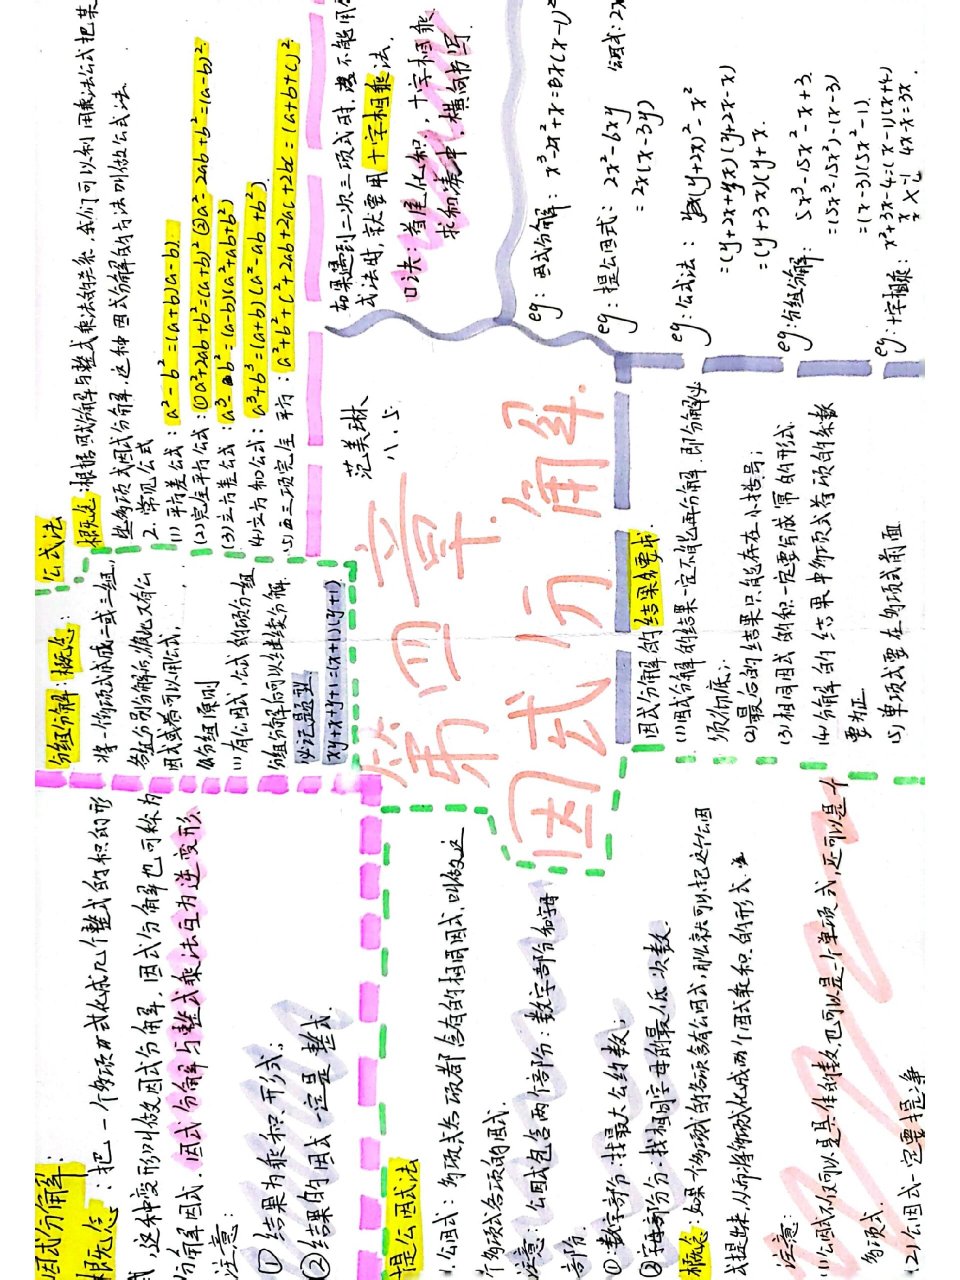 因式分解:
概念:把一个多项式化成几个整式的积的形
式,这种变形叫做因式分解,因式分解也可称为
分解因式.因式分解与整式乘法互为逆变形
注意:
①结果为乘积形式;
②结果的因式一定是整式.
分组分解:概念:
将一个多项式分成二或三组,
各组分别分解后,彼此又有公
因式或者可以用公式,
分组原则
(1)有公因式,公式的项分一组
分组分解后可以继续分解
必记题型
xy+x+y+1=(x+1)(y+1)
公式法
概念:根据因式分解与整式乘法的关系,我们可以利用乘法公式把某
些多项式因式分解.这种因式分解的方法叫做公式法.
2.常见公式
(1)平方差公式:a²-b²=(a+b)(a-b)
(2)完全平方公式:①a²+2ab+b²=(a+b)²②a²-2ab+b²=(a-b)²
(3)立方差公式:a³-b³=(a-b)(a²+ab+b²)
(4)立方和公式:a³+b³=(a+b)(a²-ab+b²)
(5)三项完全平方:a²+b²+c²+2ab+2ac+2bc=(a+b+c)²
如果遇到二次三项式时,不能用公
式法时,就要用十字相乘法.
口诀:首尾分解,十字相乘
求和凑中,横向书写
范美琳
八.5
第四章
因式分解.
提公因式法
1.公因式:多项式各项都含有的相同因式,叫做这
个多项式各项的公因式.
注意:公因式包含两个部分:数字部分和字母
部分.
①数字部分:找最大公约数;
②字母部分:找相同字母的最低次数.
概念:如果一个多项式的各项含有公因式,那么就可以把这个公因
式提出来,从而将多项式化成两个因式乘积的形式.
注意:
(1)公因式不仅可以是具体的数,也可以是一个单项式,还可以是一个
多项式.
(2)公因式一定要提净
因式分解的结果要求.
(1)因式分解的结果一定不能再分解.即分解必
须彻底;
(2)最后的结果只能存在小括号;
(3)相同因式的积一定要写成幂的形式
(4)分解的结果中多项式首项的系数
要为正
(5)单项式要在多项式前面
eg:因式分解:x³-2x²+x=x(x-1)²
eg:提公因式:2x²-6xy
=2x(x-3y)
公因式:2x
eg:公式法:(y+2x)²-x²
=(y+2x+x)(y+2x-x)
=(y+3x)(y+x)
eg:分组分解:5x³-15x²-x+3
=(5x³-15x²)-(x-3)
=(x-3)(5x²-1)
eg:十字相乘:x²+3x-4=(x-1)(x+4)
4x-x=3x